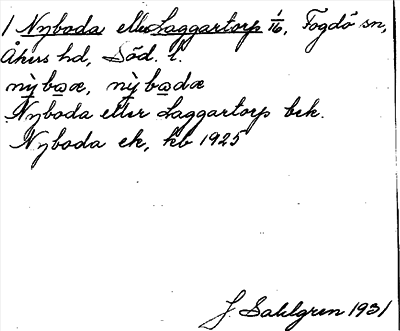 1 Nyboda eller Laggartorp 1/16, Fogdö sn,
Åkers hd, Söd. l.
nỳbo̲æ, nỳbo̲dæ
Nyboda eller Laggartorp bek.
Nyboda ek, kb 1925
J Sahlgren 1931